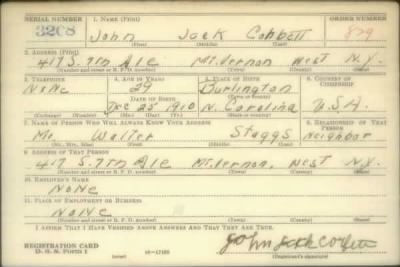 SERIAL NUMBER 1. NAME (Print) ORDER NUMBER
3268 John Jack Cobbett 879
(First) (Middle) (Last)
2. ADDRESS (Print)
417 S. 7th Ave Mt. Vernon West N.Y.
(Number and street or R. F. D. number) (Town) (County) (State)
3. TELEPHONE 4. AGE IN YEARS 5. PLACE OF BIRTH 6. COUNTRY OF CITIZENSHIP
None 29 Burlington
DATE OF BIRTH (Town or county)
Dec 25 1910 N. Carolina U.S.A.
(Exchange) (Number) (Mo.) (Day) (Yr.) (State or country)
7. NAME OF PERSON WHO WILL ALWAYS KNOW YOUR ADDRESS 8. RELATIONSHIP OF THAT PERSON
Mr. Walter Staggs Neighbor
(Mr., Mrs., Miss) (First) (Middle) (Last)
9. ADDRESS OF THAT PERSON
417 S. 7th Ave Mt. Vernon, West N.Y.
(Number and street or R. F. D. number) (Town) (County) (State)
10. EMPLOYER'S NAME
None
11. PLACE OF EMPLOYMENT OR BUSINESS
None
(Number and street or R. F. D. number) (Town) (County) (State)
I AFFIRM THAT I HAVE VERIFIED ABOVE ANSWERS AND THAT THEY ARE TRUE.
REGISTRATION CARD
D. S. S. FORM 1 John Jack